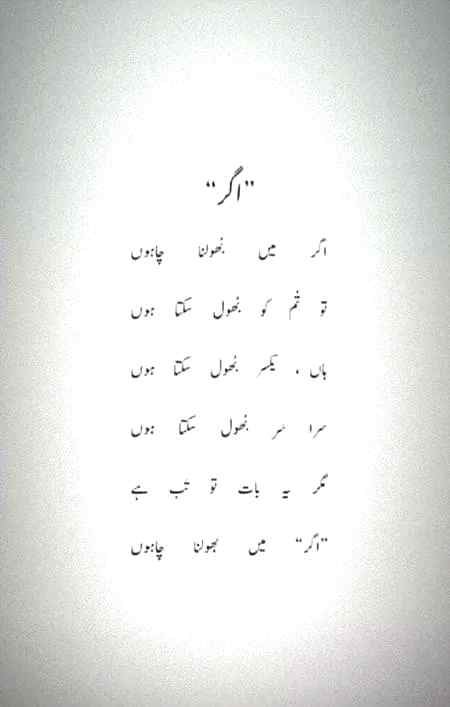 ”اگر“
اگر میں بُھولنا چاہوں
تو تُم کو بُھول سکتا ہوں
ہاں ، یکسر بُھول سکتا ہوں
سرا سر بُھول سکتا ہوں
مگر یہ بات تو تب ہے
”اگر“ میں بھولنا چاہوں